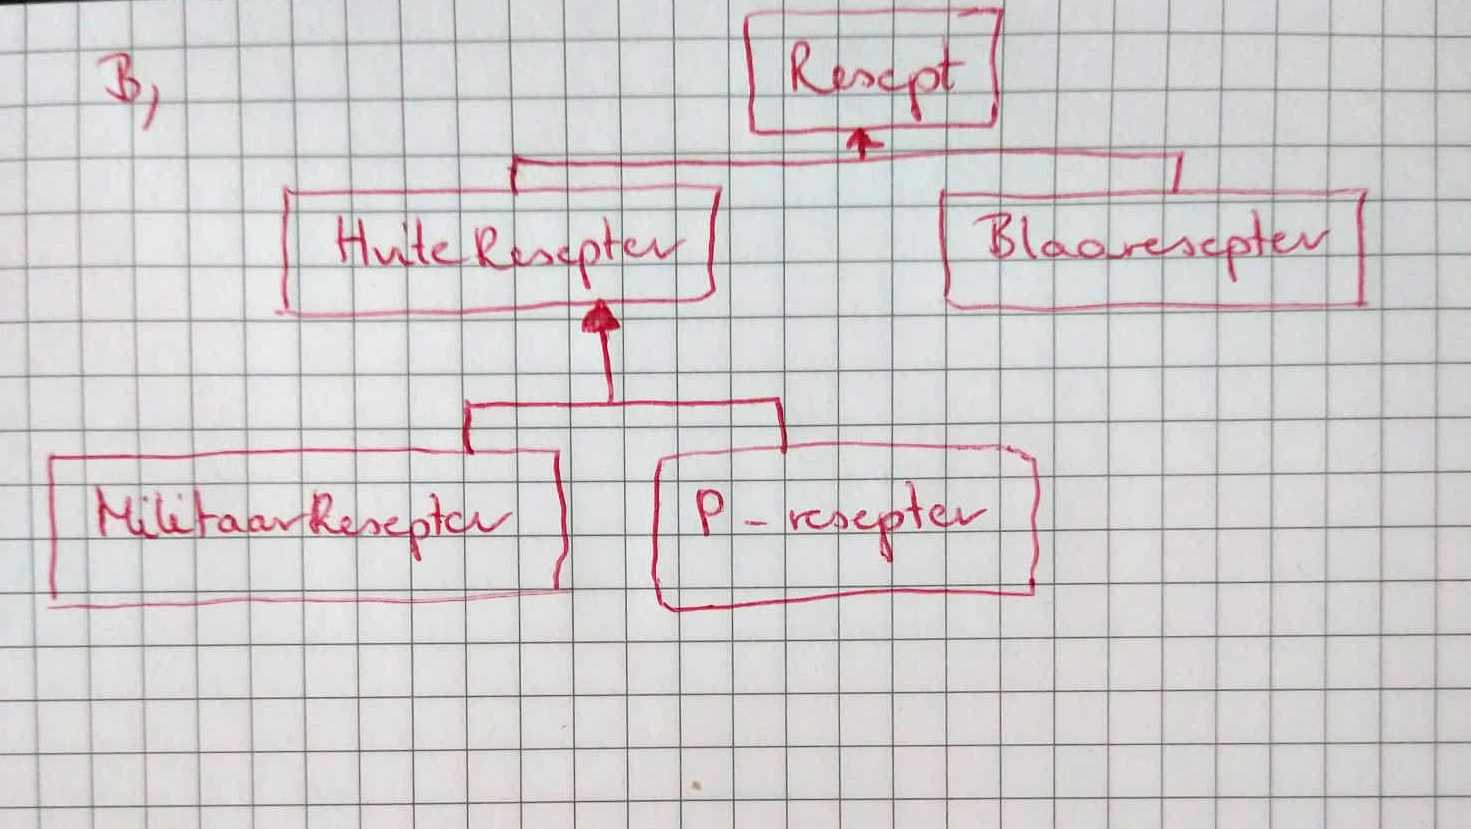 B,
Resept
Hvite Resepter
Blaaresepter
MilitaarResepter
P-resepter